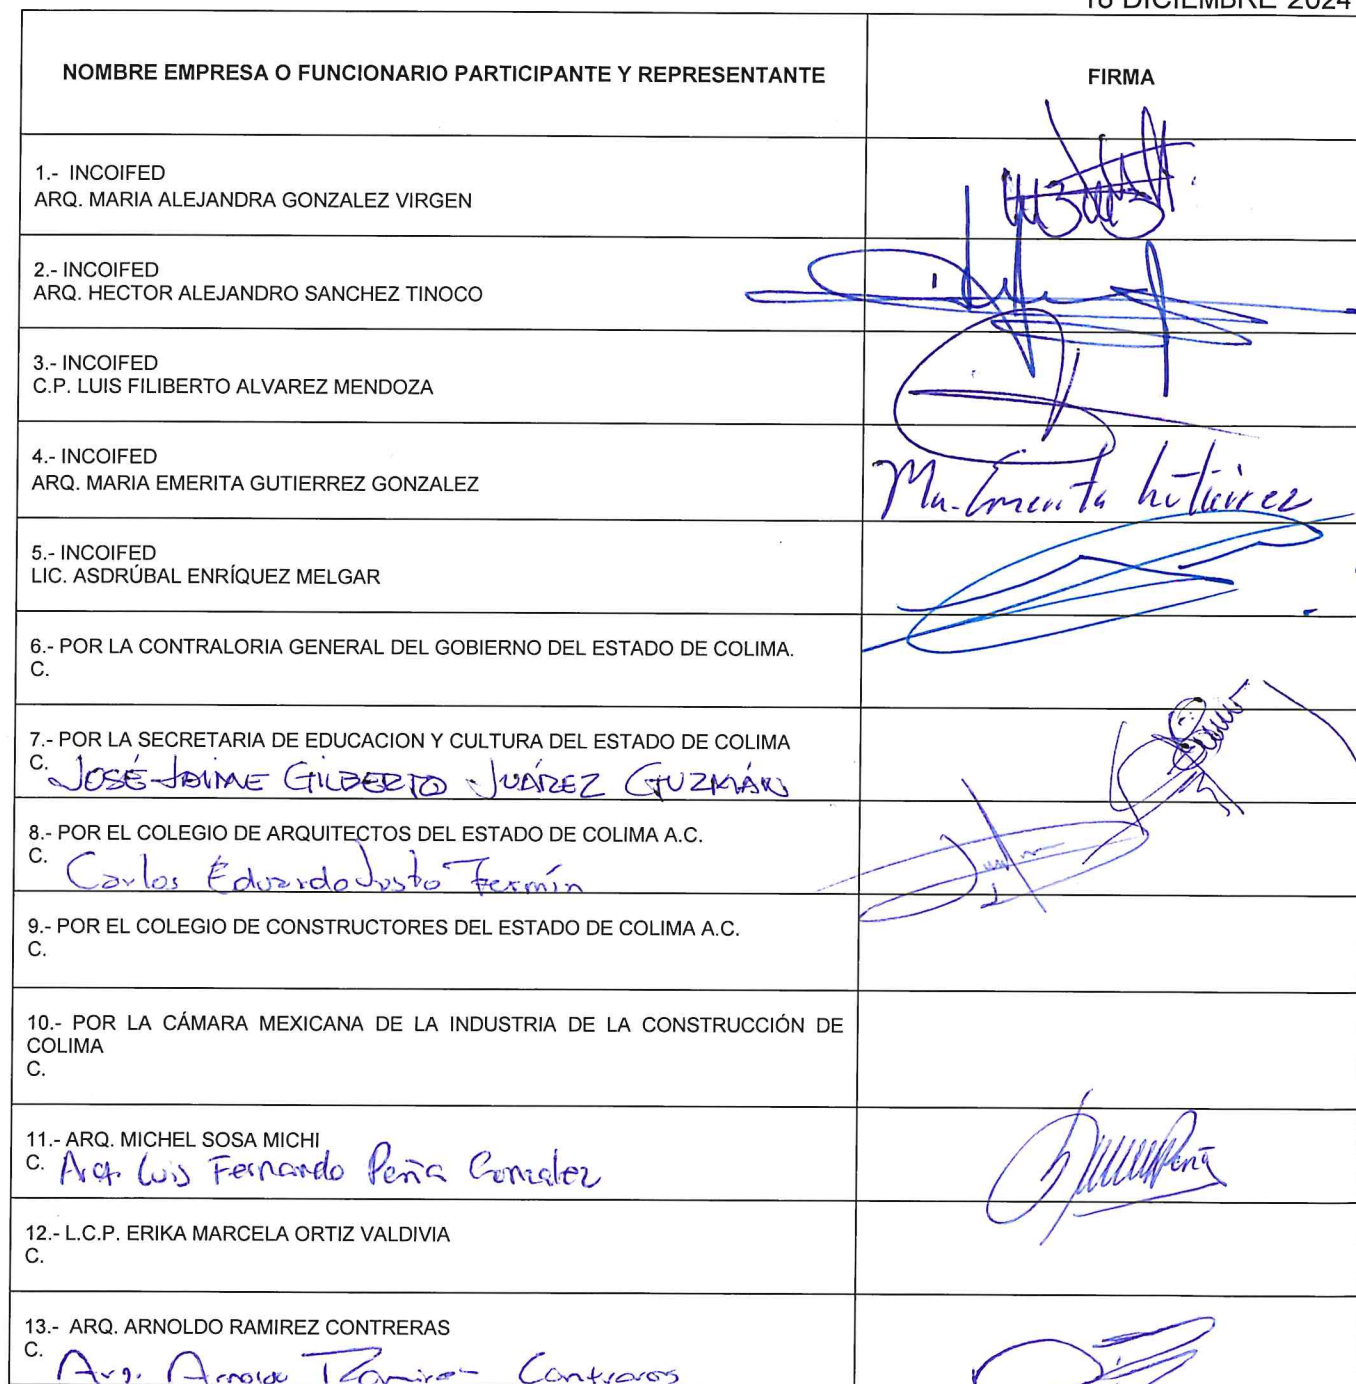 18 DICIEMBRE 2024
NOMBRE EMPRESA O FUNCIONARIO PARTICIPANTE Y REPRESENTANTE
FIRMA
1.- INCOIFED
ARQ. MARIA ALEJANDRA GONZALEZ VIRGEN
2.- INCOIFED
ARQ. HECTOR ALEJANDRO SANCHEZ TINOCO
3.- INCOIFED
C.P. LUIS FILIBERTO ALVAREZ MENDOZA
4.- INCOIFED
ARQ. MARIA EMERITA GUTIERREZ GONZALEZ
Ma. Emerita Gutiérrez
5.- INCOIFED
LIC. ASDRÚBAL ENRÍQUEZ MELGAR
6.- POR LA CONTRALORIA GENERAL DEL GOBIERNO DEL ESTADO DE COLIMA.
C.
7.- POR LA SECRETARIA DE EDUCACION Y CULTURA DEL ESTADO DE COLIMA
C. JOSÉ JAIME GILBERTO JUÁREZ GUZMÁN
8.- POR EL COLEGIO DE ARQUITECTOS DEL ESTADO DE COLIMA A.C.
C. Carlos Eduardo Justo Fermín
9.- POR EL COLEGIO DE CONSTRUCTORES DEL ESTADO DE COLIMA A.C.
C.
10.- POR LA CÁMARA MEXICANA DE LA INDUSTRIA DE LA CONSTRUCCIÓN DE
COLIMA
C.
11.- ARQ. MICHEL SOSA MICHI
C. Arq. Luis Fernando Peña Gonzalez
Peña
12.- L.C.P. ERIKA MARCELA ORTIZ VALDIVIA
C.
13.- ARQ. ARNOLDO RAMIREZ CONTRERAS
C. Arq. Arnoldo Ramirez Contreras